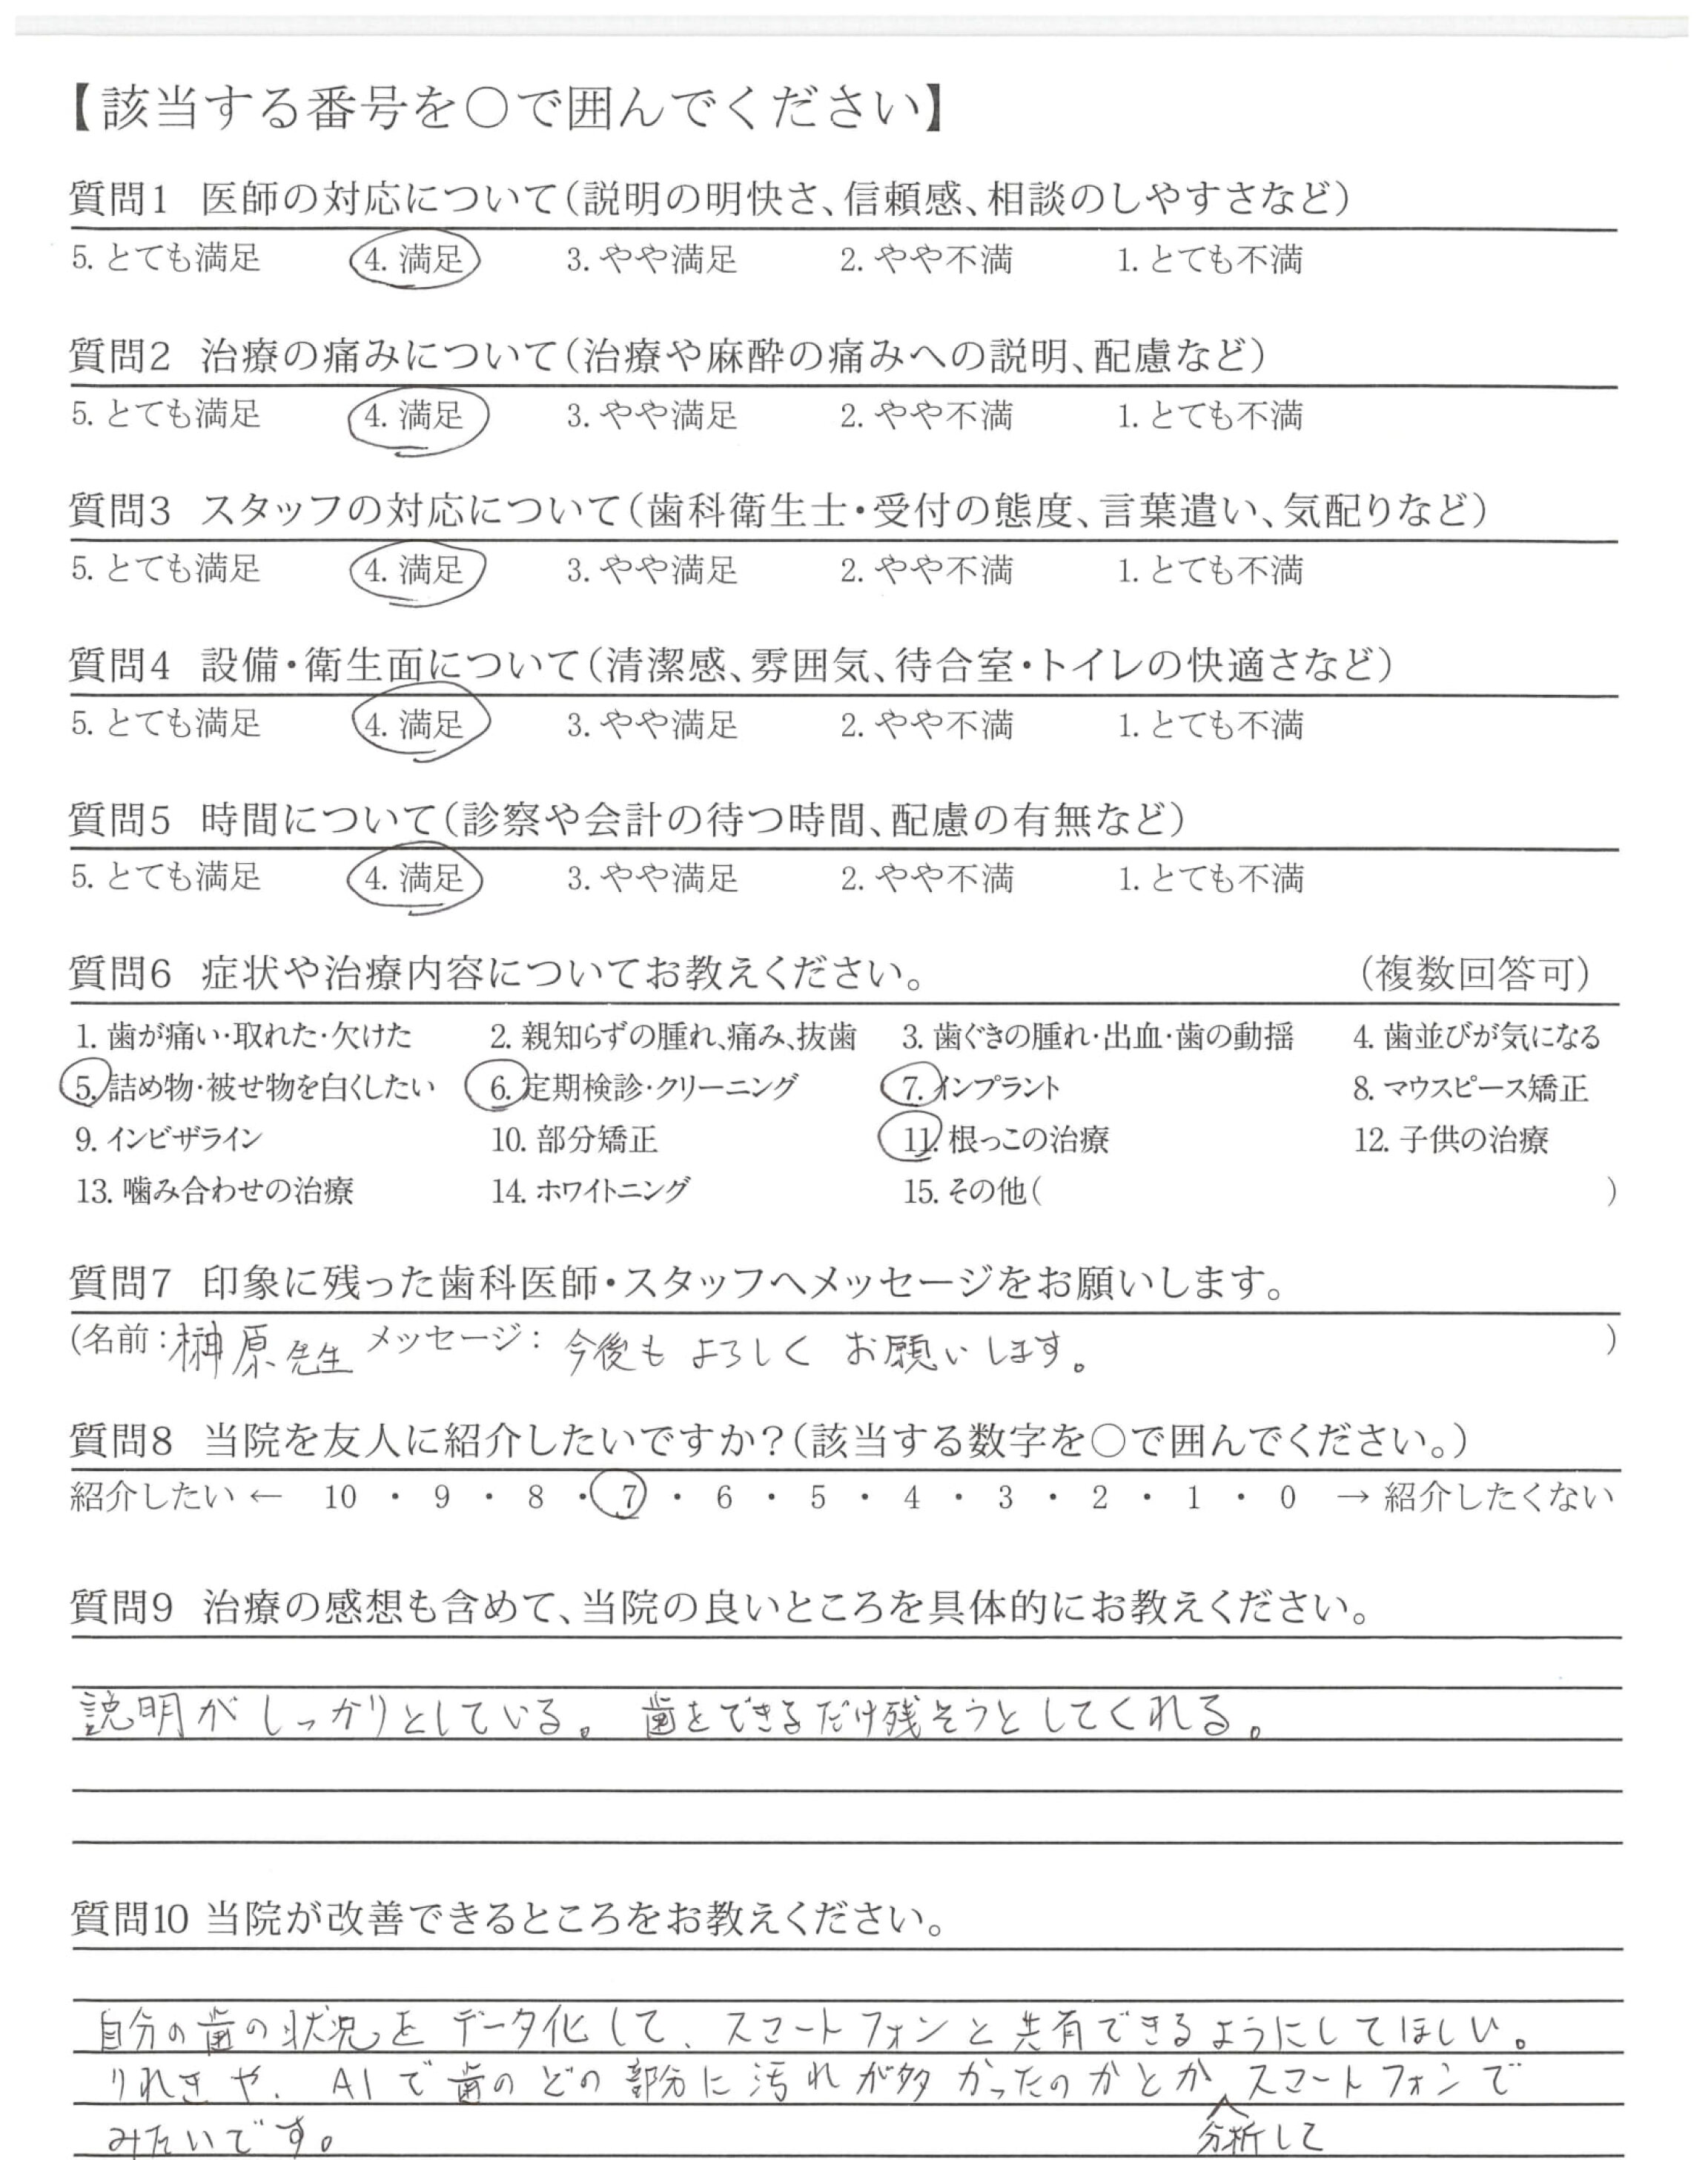 【該当する番号を〇で囲んでください】
質問1 医師の対応について(説明の明快さ、信頼感、相談のしやすさなど)
5. とても満足 4. 満足 3. やや満足 2. やや不満 1. とても不満
質問2 治療の痛みについて(治療や麻酔の痛みへの説明、配慮など)
5. とても満足 4. 満足 3. やや満足 2. やや不満 1. とても不満
質問3 スタッフの対応について(歯科衛生士・受付の態度、言葉遣い、気配りなど)
5. とても満足 4. 満足 3. やや満足 2. やや不満 1. とても不満
質問4 設備・衛生面について(清潔感、雰囲気、待合室・トイレの快適さなど)
5. とても満足 4. 満足 3. やや満足 2. やや不満 1. とても不満
質問5 時間について(診察や会計の待つ時間、配慮の有無など)
5. とても満足 4. 満足 3. やや満足 2. やや不満 1. とても不満
質問6 症状や治療内容についてお教えください。 (複数回答可)
1. 歯が痛い・取れた・欠けた 2. 親知らずの腫れ、痛み、抜歯 3. 歯ぐきの腫れ・出血・歯の動揺 4. 歯並びが気になる
5. 詰め物・被せ物を白くしたい 6. 定期検診・クリーニング 7. インプラント 8. マウスピース矯正
9. インビザライン 10. 部分矯正 11. 根っこの治療 12. 子供の治療
13. 噛み合わせの治療 14. ホワイトニング 15. その他( )
質問7 印象に残った歯科医師・スタッフへメッセージをお願いします。
(名前:榊原先生 メッセージ: 今後も よろしく お願いします。 )
質問8 当院を友人に紹介したいですか?(該当する数字を〇で囲んでください。)
紹介したい ← 10 ・ 9 ・ 8 ・ 7 ・ 6 ・ 5 ・ 4 ・ 3 ・ 2 ・ 1 ・ 0 → 紹介したくない
質問9 治療の感想も含めて、当院の良いところを具体的にお教えください。
説明がしっかりとしている。 歯をできるだけ残そうとしてくれる。
質問10 当院が改善できるところをお教えください。
自分の歯の状況をデータ化して、スマートフォンと共有できるようにしてほしい。
りれきや、AIで歯のどの部分に汚れが多かったのかとかスマートフォンで
みたいです。 分析して